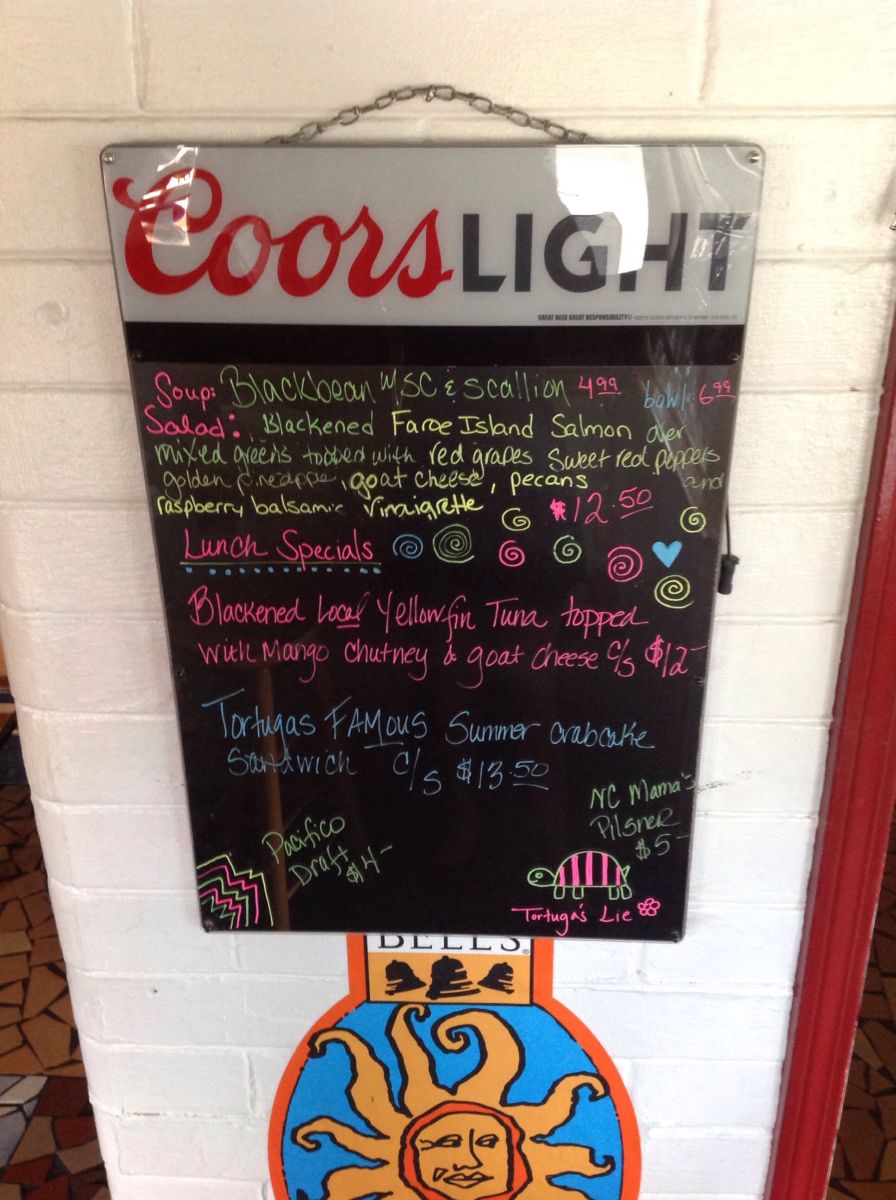 Coors LIGHT
GREAT BEER GREAT RESPONSIBILITY
Soup: Blackbean w/ SC & scallion 4.99 bowl: 6.99
Salad: Blackened Faroe Island Salmon over
mixed greens topped with red grapes sweet red peppers
golden pineapple, goat cheese, pecans and
raspberry balsamic vinaigrette $12.50
Lunch Specials
Blackened Local Yellowfin Tuna topped
with Mango chutney & goat cheese c/s $12-
Tortugas FAMOUS Summer crabcake
Sandwich c/s $13.50
NC Mama's
Pilsner
$5-
Pacifico
Draft
$4-
Tortuga's Lie
BELL'S